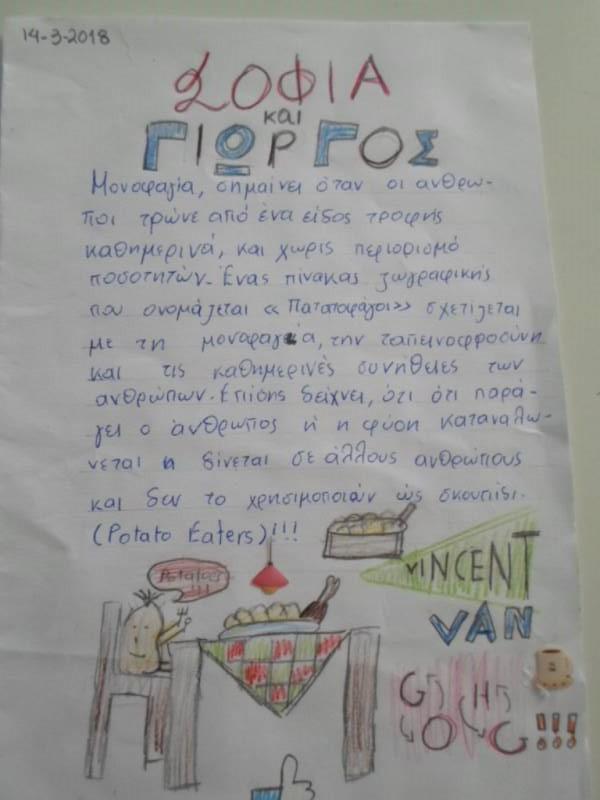 14-3-2018
ΣΟΦΙΑ
και
ΓΙΩΡΓΟΣ
Μονοφαγία, σημαίνει όταν οι ανθρω-
ποι τρώνε από ένα είδος τροφής
καθημερινά, και χωρίς περιορισμό
ποσοτήτων. Ένας πίνακας ζωγραφικής
που ονομάζεται «Πατατοφάγοι» σχετίζεται
με τη μονοφαγία, την ταπεινοφροσύνη
και τις καθημερινές συνήθειες των
ανθρώπων. Επίσης δείχνει, ότι ότι παρά-
γει ο άνθρωπος ή η φύση καταναλω-
νεται ή δίνεται σε άλλους ανθρώπους
και δεν το χρησιμοποιούν ώς σκουπίδι.
(Potato Eaters)!!!
Potatoes
!!!
VINCENT
VAN
GOGH!!!